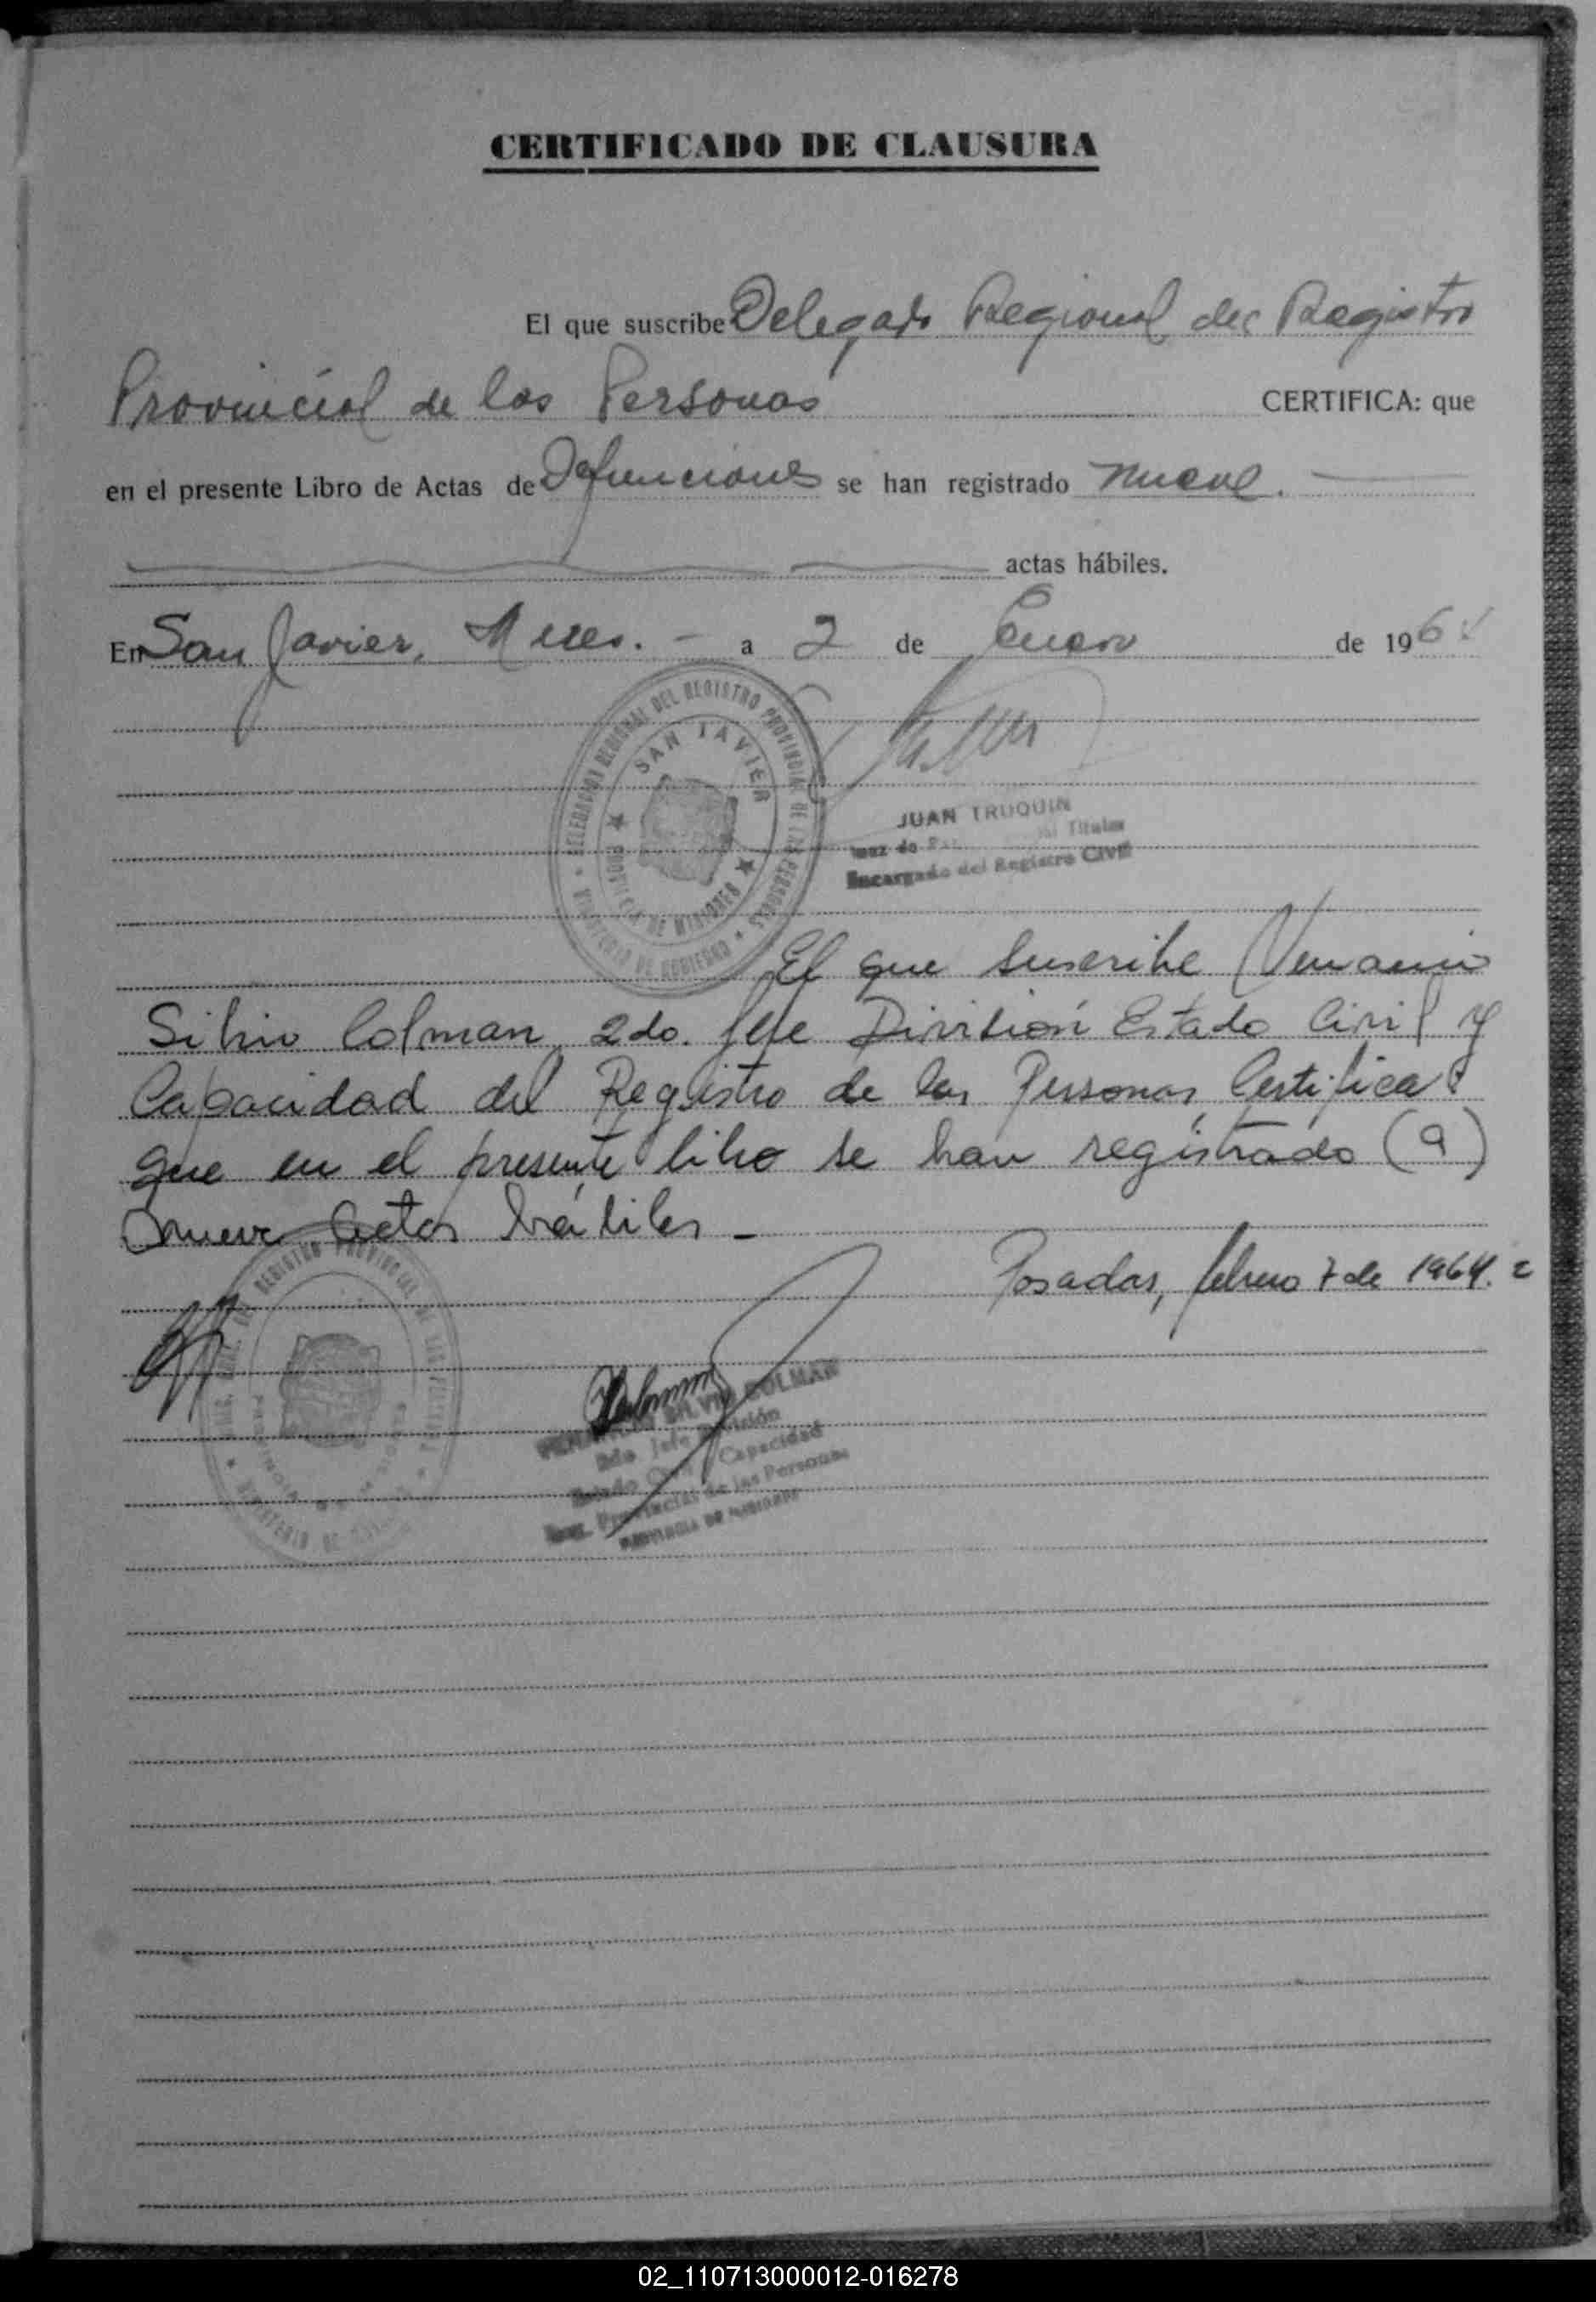 CERTIFICADO DE CLAUSURA
El que suscribe Delegado Regional del Registro
Provincial de las Personas CERTIFICA: que
en el presente Libro de Actas de Defunciones se han registrado nueve.
actas hábiles.
En San Javier, Mnes. - a 2 de Enero de 196
DELEGACION REGIONAL DEL REGISTRO PROVINCIAL DE LAS PERSONAS
SAN JAVIER
PROVINCIA DE MISIONES
MINISTERIO DE GOBIERNO
JUAN TRUQUIN
Juez de Titular
Encargado del Registro Civil
El que suscribe Venancio
Silvio Colman, 2do. Jefe División Estado Civil y
Capacidad del Registro de las Personas, Certifica:
que en el presente libro se han registrado (9)
nueve actas hábiles -
Posadas, febrero 7 de 1964.=
REGISTRO PROVINCIAL DE LAS PERSONAS
MINISTERIO DE
VENANCIO SILVIO COLMAN
2do Jefe División
Estado Civil y Capacidad
Reg. Provincial de las Personas
PROVINCIA DE MISIONES
02_110713000012-016278